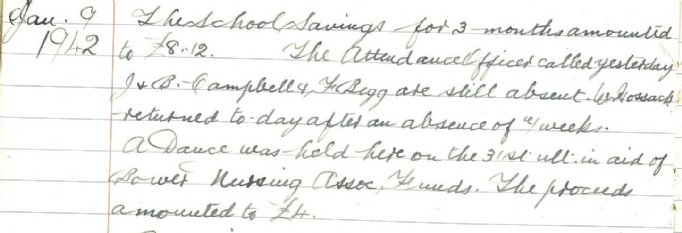 Jan. 9 The School Savings for 3 months amounted
1942 to £8.12. The Attendance Officer called yesterday
J & B. Campbell & F Begg are still absent. W Hossack
returned to-day after an absence of 4 weeks.
A Dance was held here on the 31st ult. in aid of
Bower Nursing Assoc, Funds. The proceeds
amounted to £4.